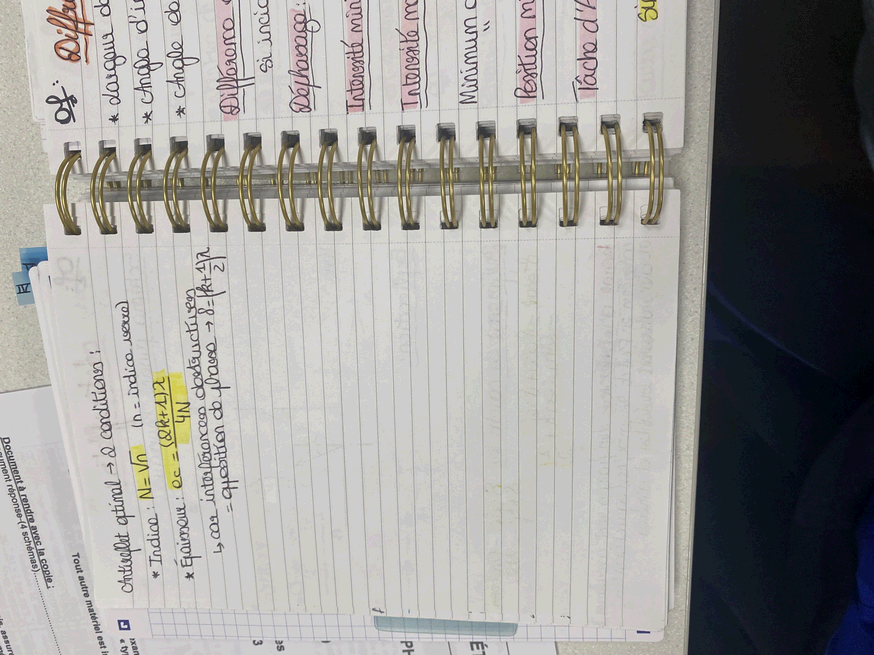 Antireflet optimal → 2 conditions :
* Indice : N = √n (n = indice verre)
* Épaisseur : ec = (2k+1)λ / 4N
↳ car interférences destructives
= opposition de phase → δ = (k + 1/2)λ
Of : Diffr
* Largeur d
* Angle d'i
* Angle d
Différence
si inci
Déphasage :
Intensité mini
Intensité m
Minimum
"
Position m
Tâche d'A
Si
Document à rendre avec la copie :
ument réponse (4 schémas)
Tout autre matériel est i
PH
ÉT
3